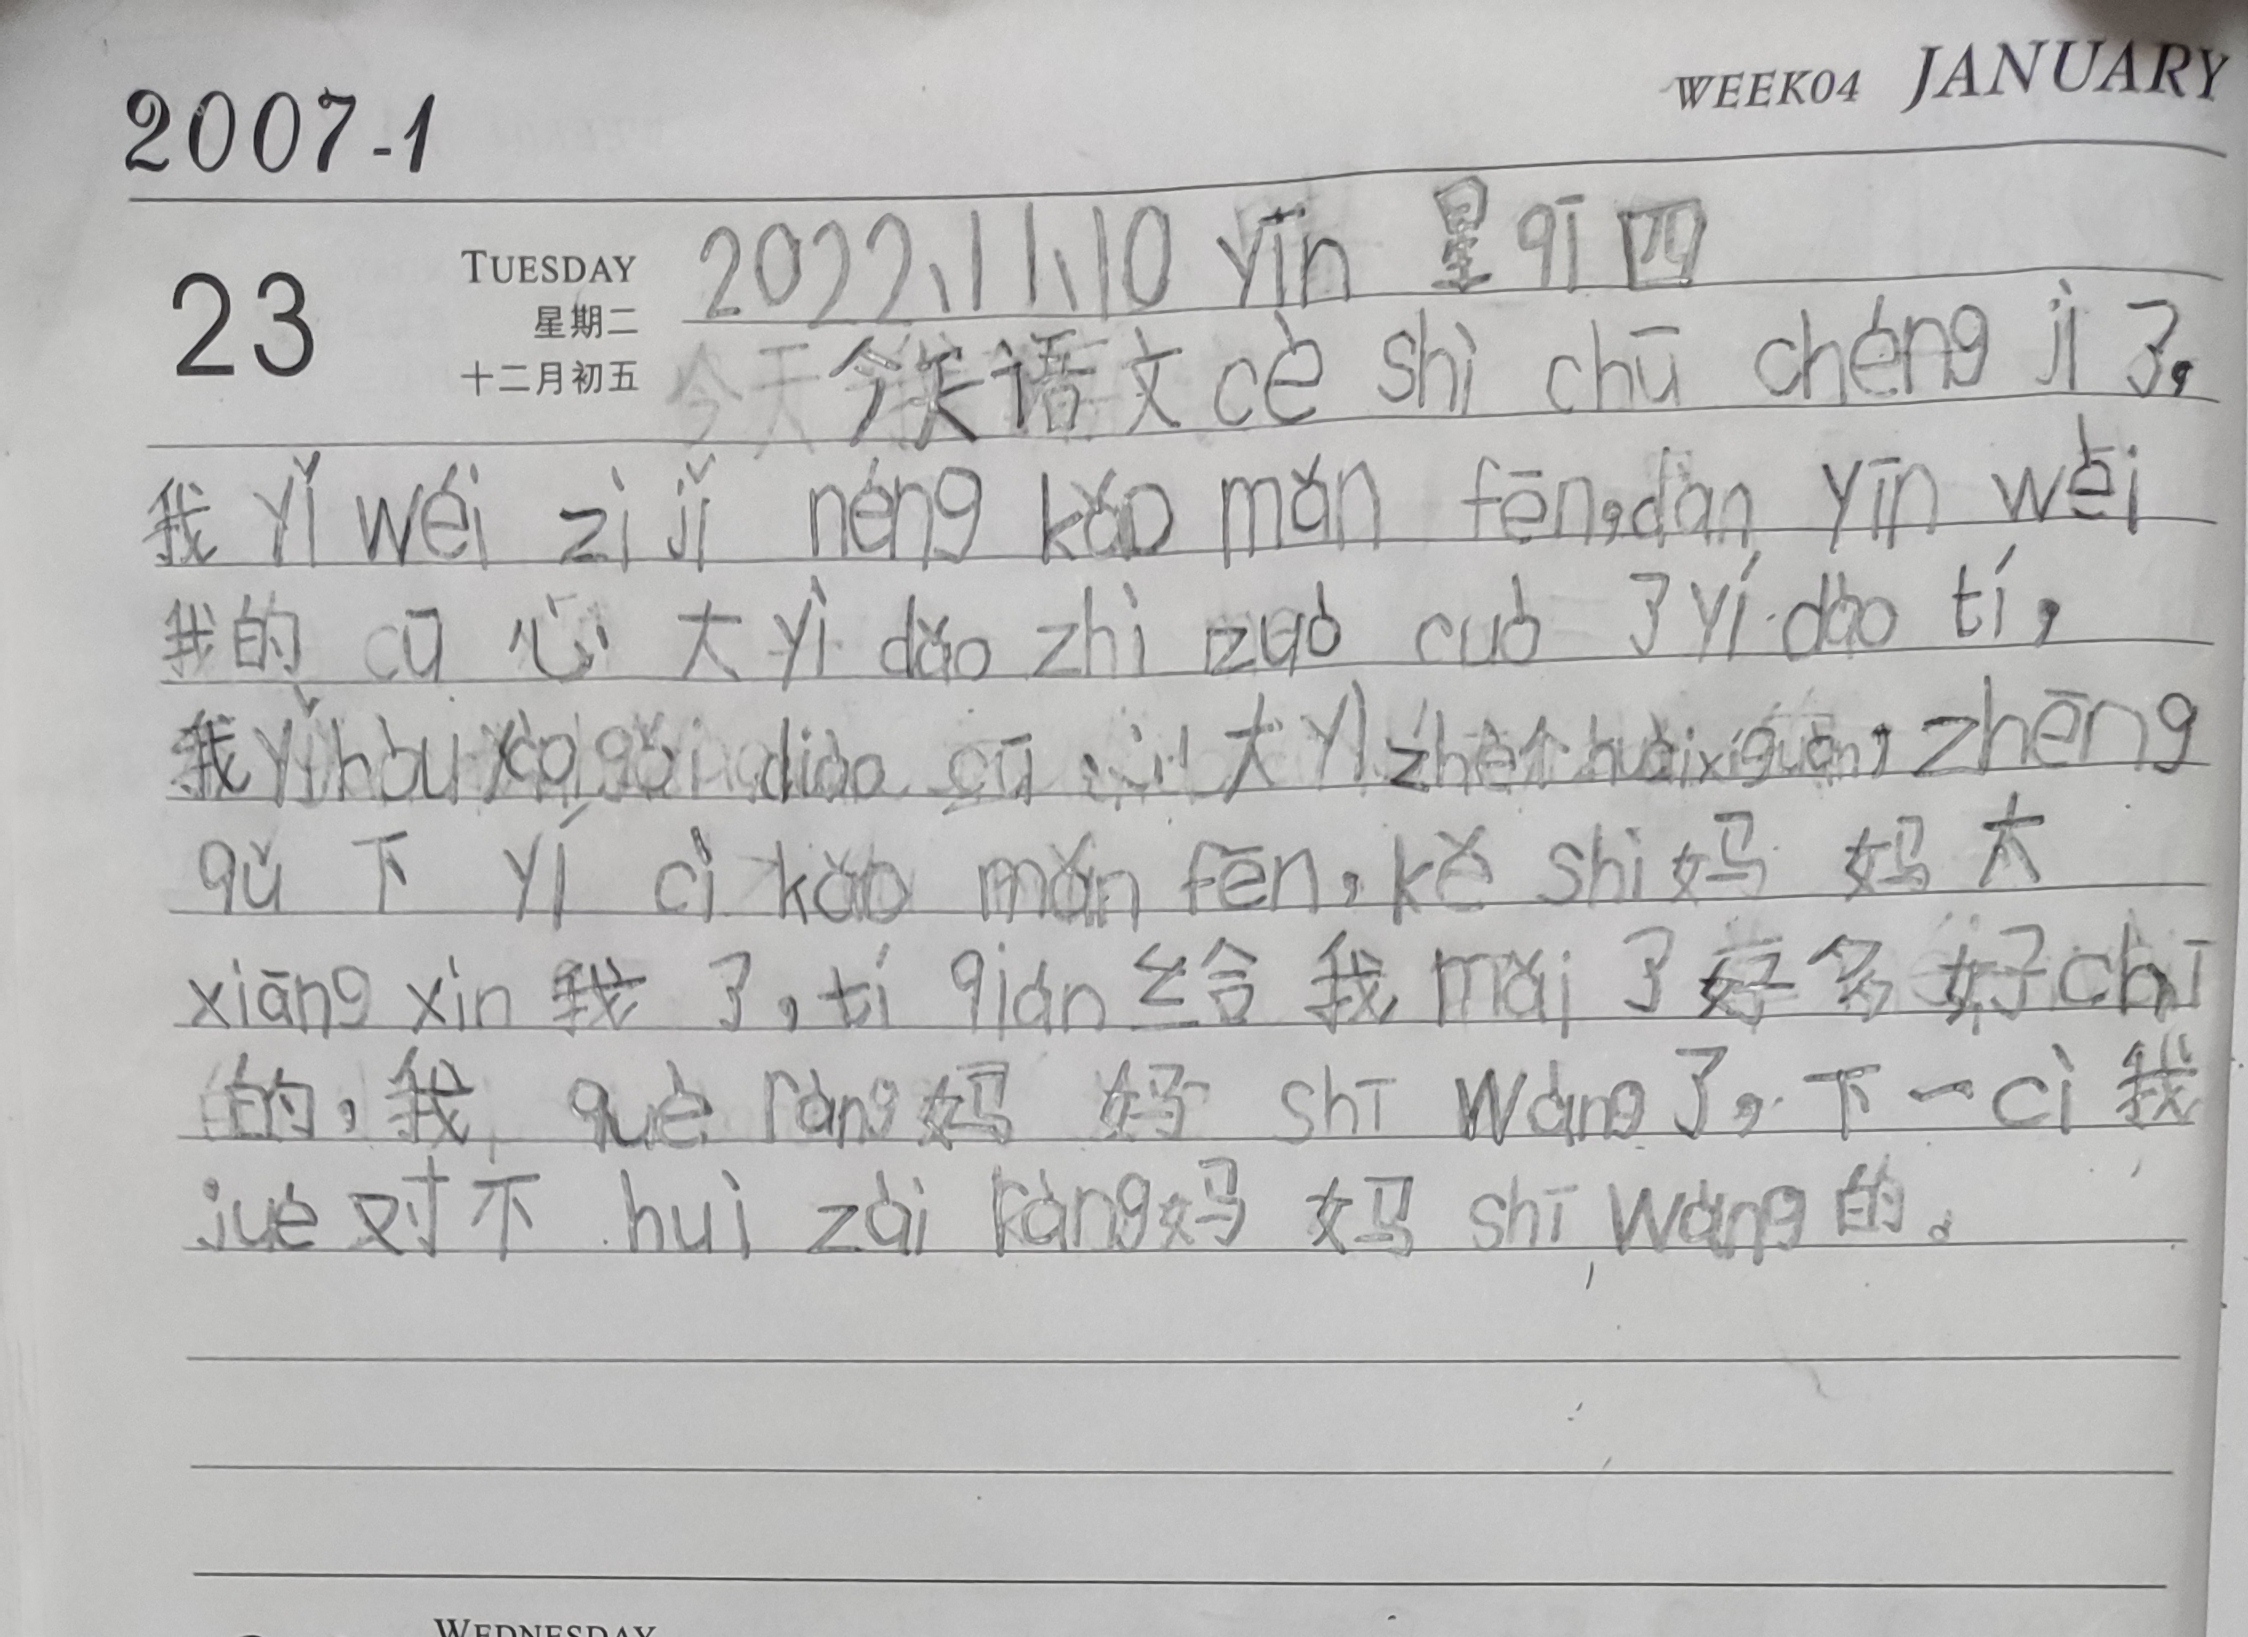 2007-1 WEEK04 JANUARY
23 TUESDAY 2022、11、10 yīn 星qī四
星期二
十二月初五 今天语文cè shì chū chéng jì了，
我 yǐ wéi zì jǐ néng kǎo mǎn fēn，dàn yīn wèi
我的 cū 心 大 yì dǎo zhì zuò cuò 了 yí dào tí，
我 yǐ hòu gǎi diào cū 心 大 yì zhè 个 huài xí guàn，zhēng
qǔ 下 yí cì kǎo mǎn fēn，kě shì 妈 妈 太
xiāng xìn 我 了，tí qián 给 我 mǎi 了 好 多 好 chī
的，我 què ràng 妈 妈 shī wàng 了，下 一 cì 我
jué 对 不 huì zài ràng 妈 妈 shī wàng 的。
WEDNESDAY